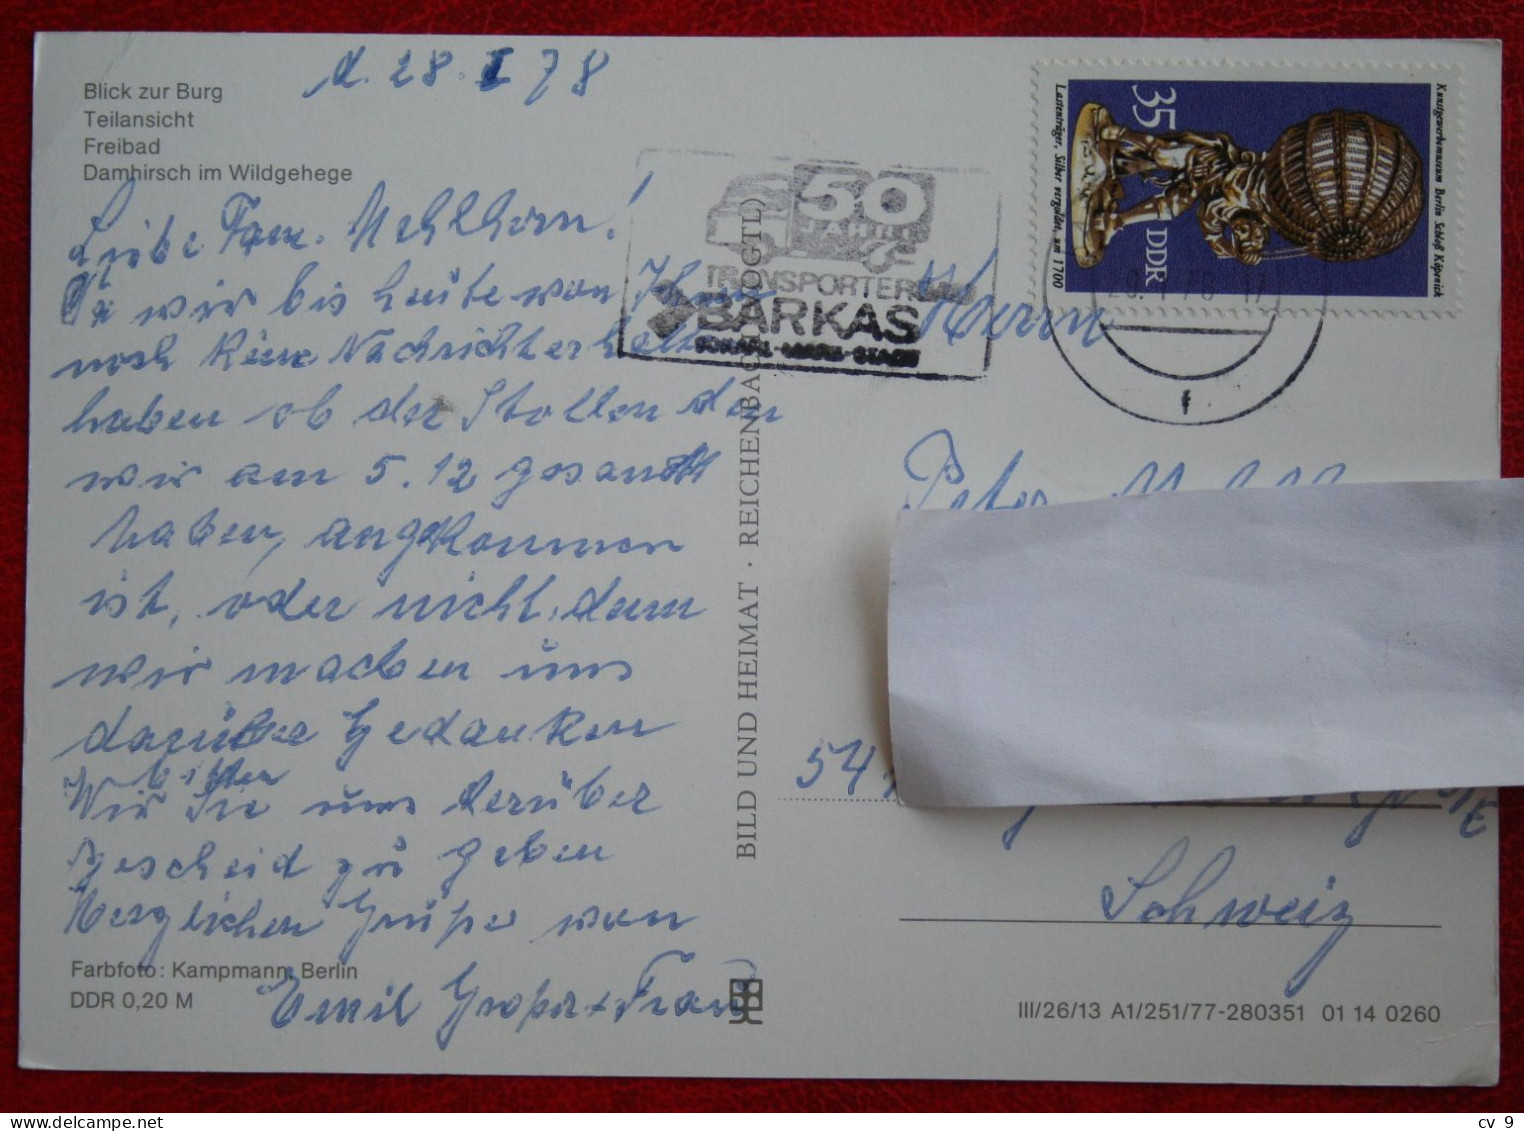 Blick zur Burg
Teilansicht
Freibad
Damhirsch im Wildgehege
d. 28. I 78
Liebe Fam. Mehlhorn!
Da wir bis heute von Ihnen
noch keine Nachricht erhalten
haben ob der Stollen den
wir am 5.12 gesandt
haben, angekommen
ist, oder nicht, dann
wir machen uns
darüber Gedanken
bitten
Wir Sie uns darüber
gescheid zu geben
Herzlichen Grüße von
Emil + Frau
Farbfoto: Kampmann, Berlin
DDR 0,20 M
BILD UND HEIMAT · REICHENBACH (VOGTL)
50
JAHRE
TRANSPORTER
BARKAS
35
DDR
Kunstgewerbemuseum Berlin Schloß Köpenick
Lastenträger, Silber vergoldet, um 1700
f
Herrn
Peter
54
Schweiz
III/26/13 A1/251/77-280351 01 14 0260
cv 9